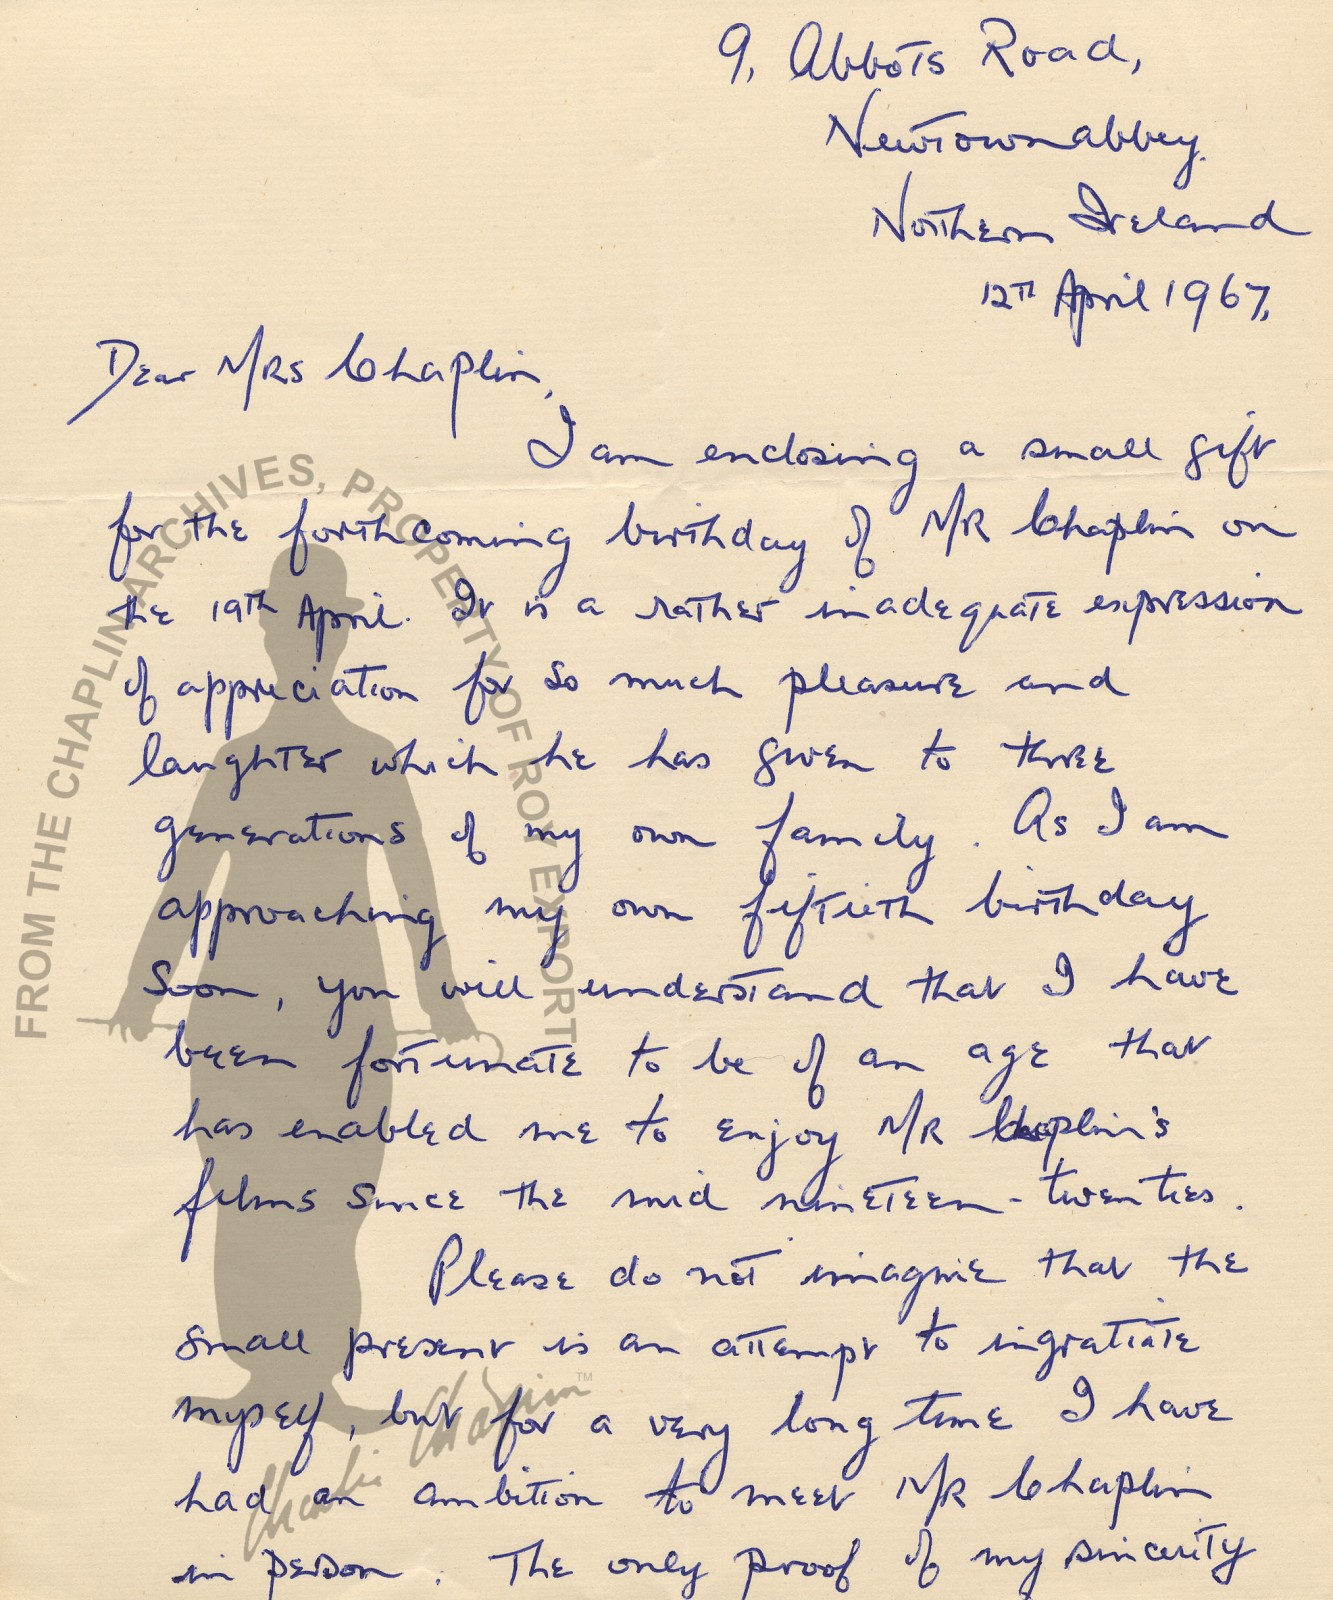 9, Abbots Road,
Newtownabbey.
Northern Ireland
12TH April 1967.
Dear MRS Chaplin,
I am enclosing a small gift
for the forthcoming birthday of MR Chaplin on
the 19th April. It is a rather inadequate expression
of appreciation for so much pleasure and
laughter which he has given to three
generations of my own family. As I am
approaching my own fiftieth birthday
soon, you will understand that I have
been fortunate to be of an age that
has enabled me to enjoy MR Chaplin's
films since the mid nineteen-twenties.
Please do not imagine that the
small present is an attempt to ingratiate
myself, but for a very long time I have
had an ambition to meet MR Chaplin
in person. The only proof of my sincerity
FROM THE CHAPLIN ARCHIVES, PROPERTY OF ROY EXPORT
Charlie Chaplin™